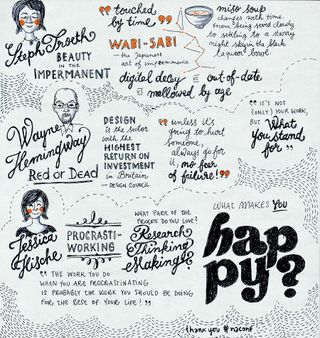 Steph Troeth
BEAUTY
IN THE
IMPERMANENT
"touched
by time"
WABI-SABI
— the Japanese
art of impermanence
miso soup
changes with time.
From being served cloudy
to settling to a starry
night sky in the black
laquer bowl.
digital decay vs out-of-date
vs mellowed by age
Wayne
Hemingway
Red or Dead
DESIGN
is the sector
with the
HIGHEST
RETURN ON
INVESTMENT
in Britain
— DESIGN COUNCIL
"unless it's
going to hurt
someone,
always go for
it, no fear
of failure!"
"IT'S NOT
(ONLY) YOUR WORK,
BUT What
you stand
for"
Jessica
Hische
PROCRASTI-
WORKING
WHAT PART OF THE
PROCESS DO YOU LOVE?
Research?
Thinking?
Making?
"THE WORK YOU DO
WHEN YOU ARE PROCRASTINATING
IS PROBABLY THE WORK YOU SHOULD BE DOING
FOR THE REST OF YOUR LIFE!"
WHAT MAKES YOU
hap
py?
thank you #naconf